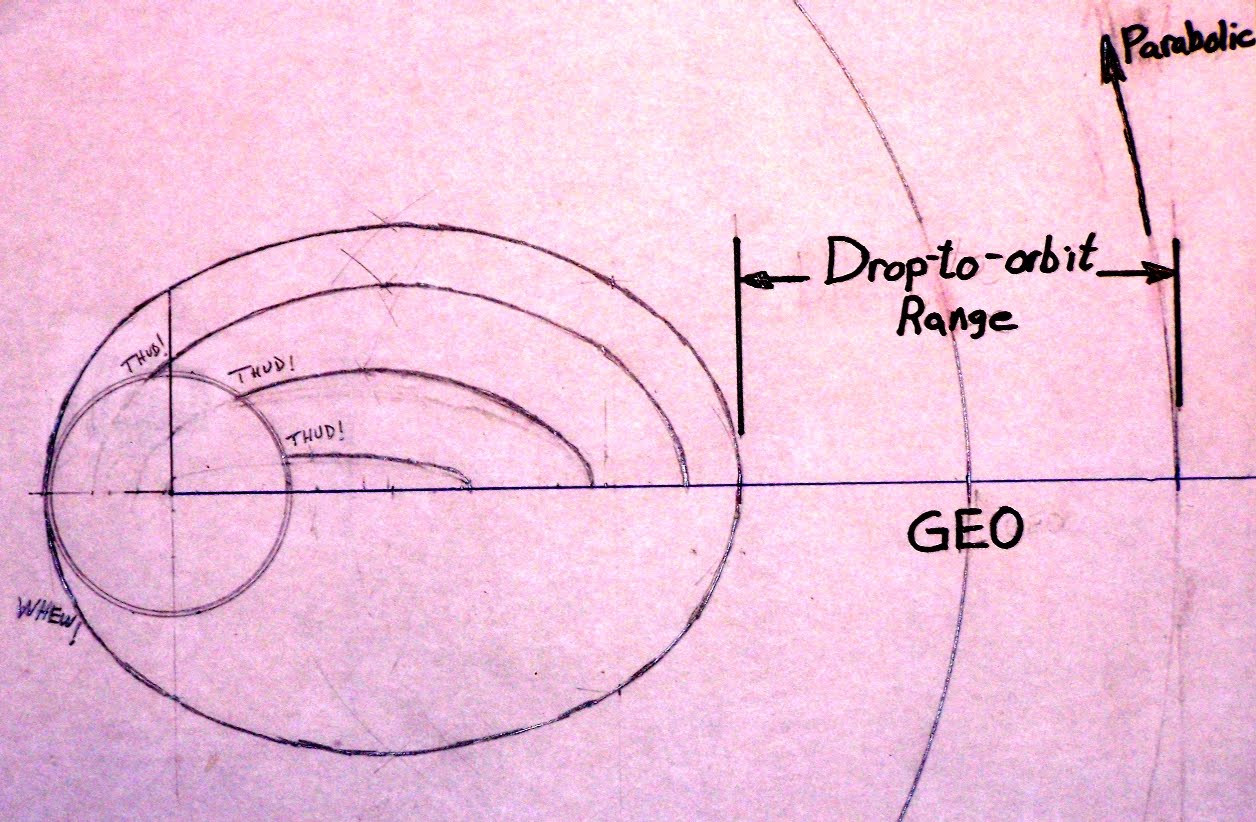 Parabolic
Drop-to-orbit
Range
THUD!
THUD!
THUD!
GEO
WHEW!